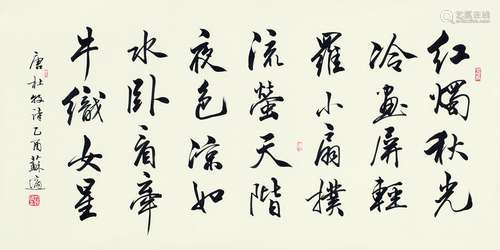 红烛秋光
冷画屏輕
羅小扇撲
流螢天階
夜色凉如
水卧看牽
牛織女星
唐杜牧诗乙酉蘇適